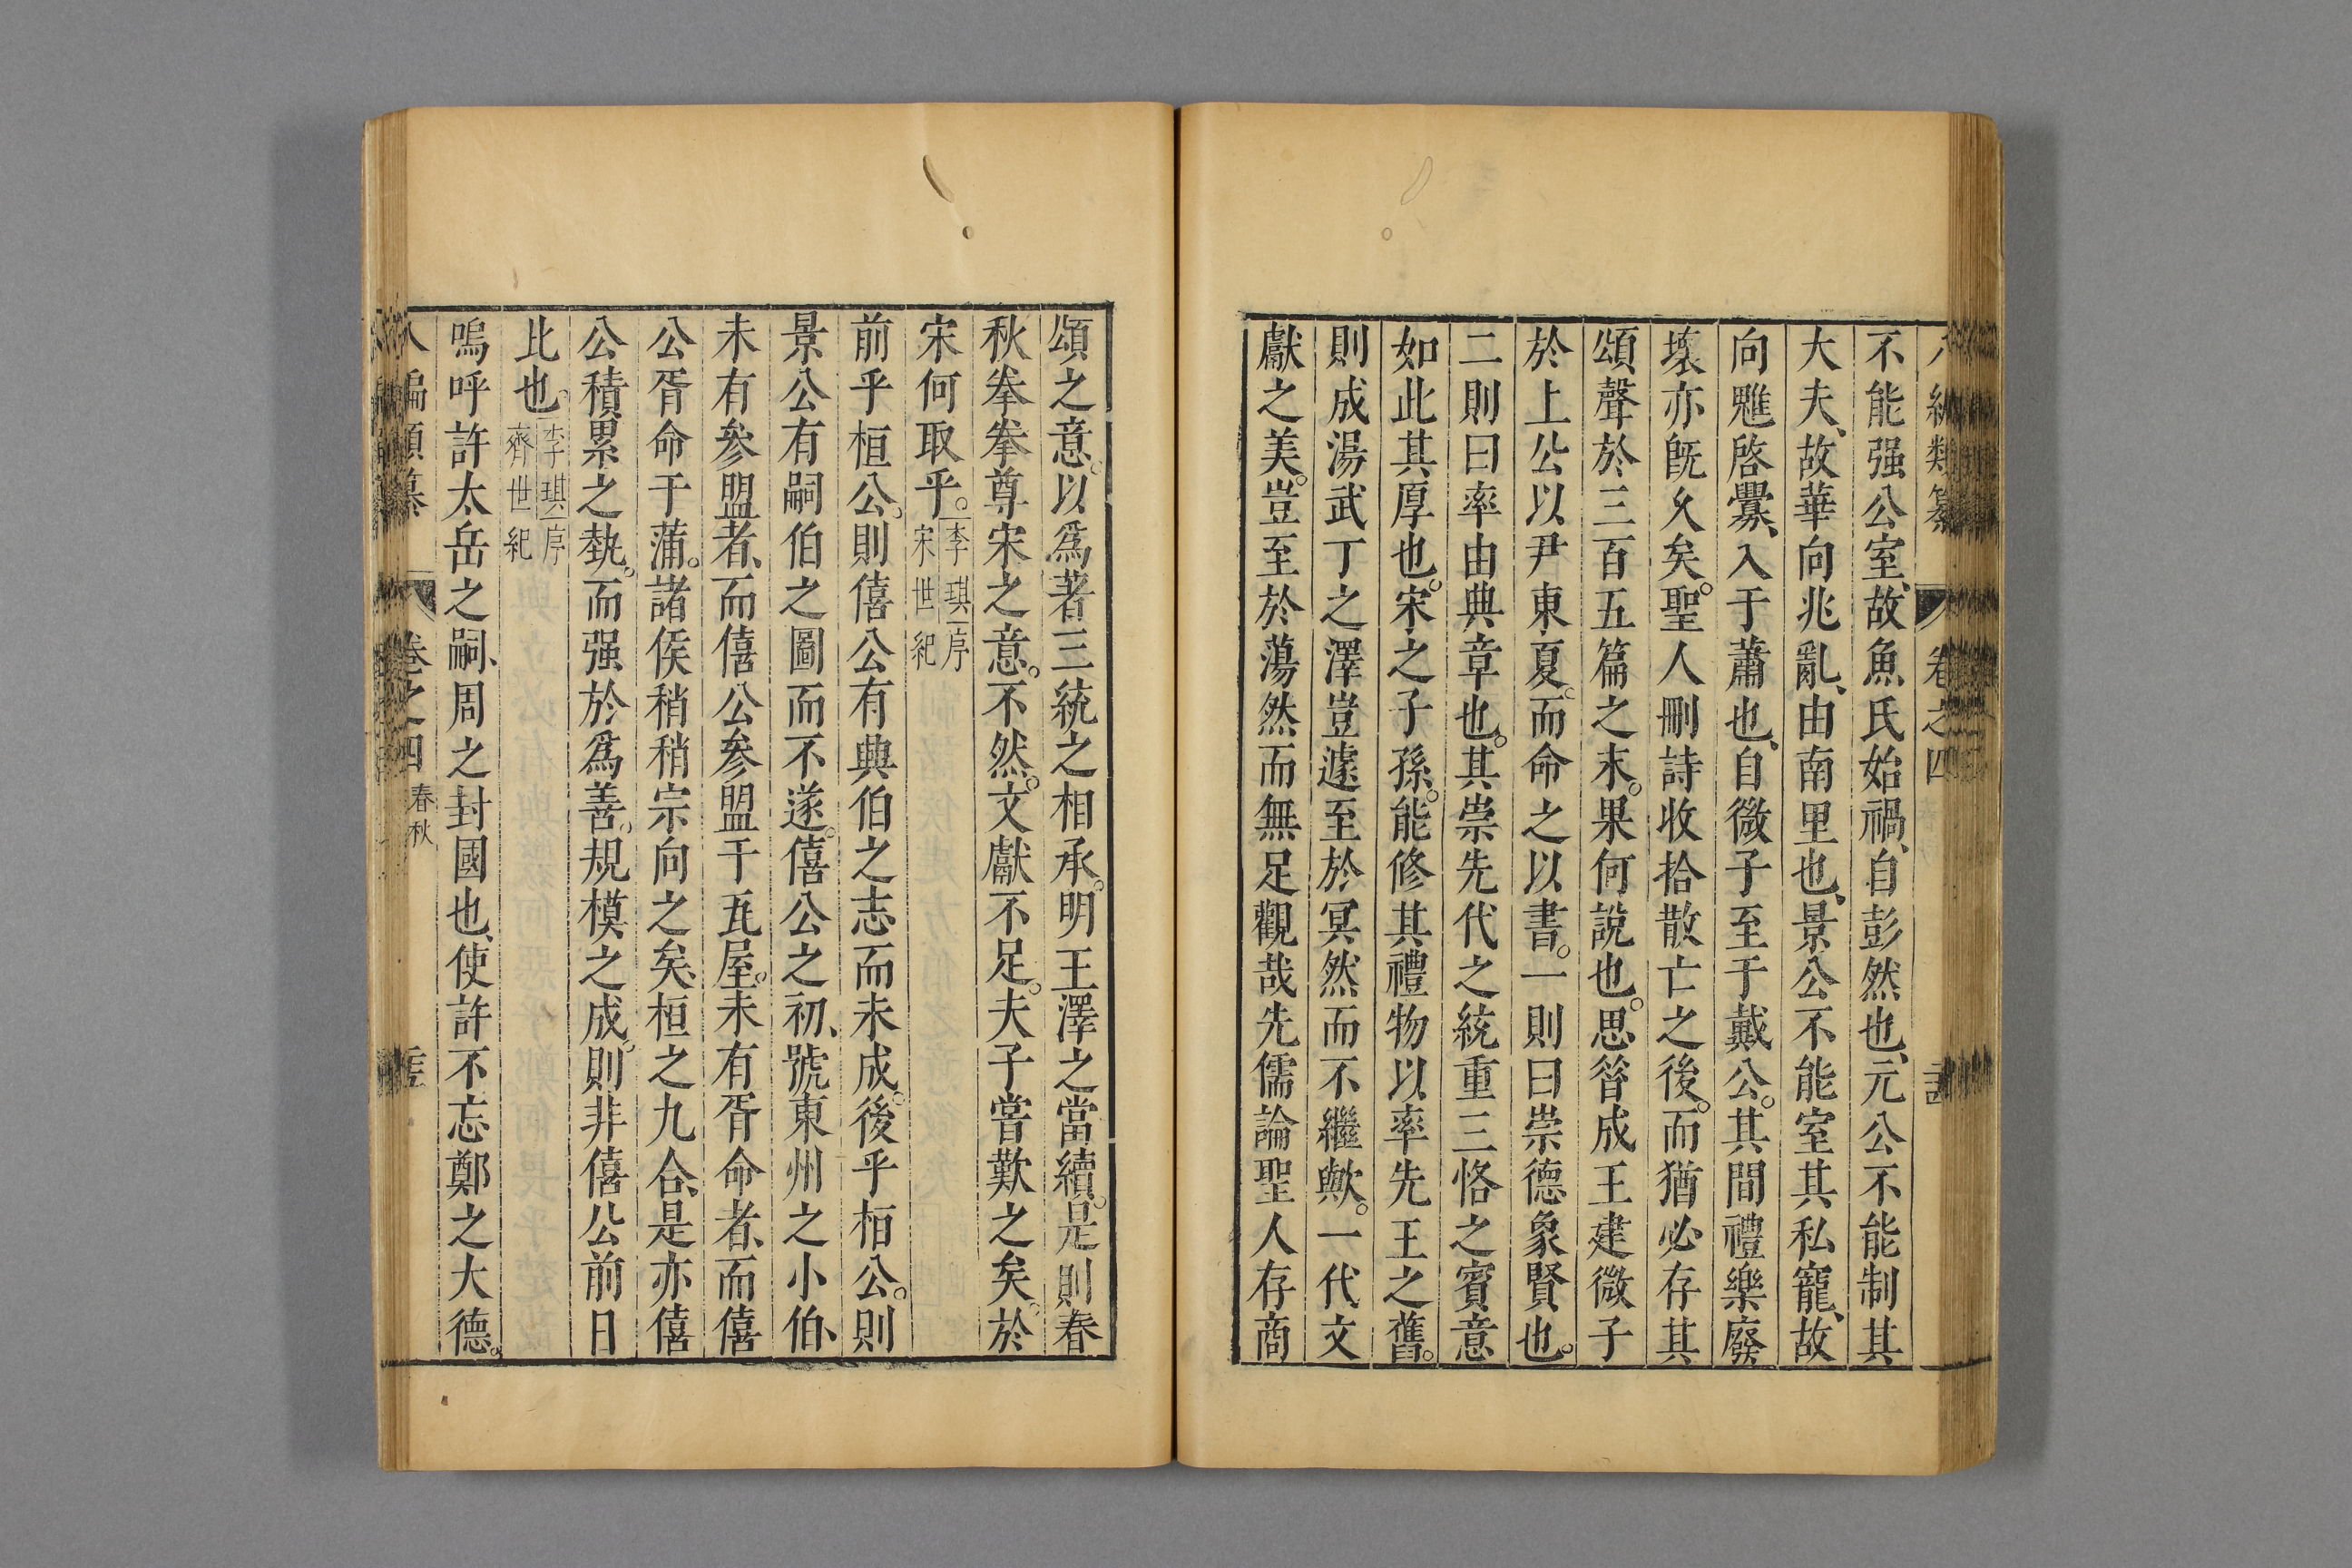 編類纂 卷之四
不能强公室、故魚氏始禍、自彭然也、元公不能制其
大夫、故華向兆亂、由南里也、景公不能室其私寵、故
向魋啓釁、入于蕭也、自微子至于戴公。其間禮樂廢
壞亦旣久矣。聖人刪詩收拾散亡之後。而猶必存其
頌聲於三百五篇之末。果何說也。思昝成王建微子
於上公以尹東夏。而命之以書。一則曰崇德象賢也。
二則曰率由典章也。其崇先代之統重三恪之賓意
如此其厚也。宋之子孫。能修其禮物以率先王之舊。
則成湯武丁之澤豈遽至於冥然而不繼歟。一代文
獻之美。豈至於蕩然而無足觀哉先儒論聖人存商
頌之意。以爲著三統之相承。明王澤之當續。是則春
秋拳拳尊宋之意。不然。文獻不足。夫子嘗歎之矣。於
宋何取乎。李琪序宋世紀
前乎桓公。則僖公有典伯之志而未成。後乎栢公。則
景公有嗣伯之圖而不遂。僖公之初、號東州之小伯、
未有參盟者、而僖公參盟于瓦屋。未有胥命者、而僖
公胥命于蒲。諸侯稍稍宗向之矣、桓之九合、是亦僖
公積累之埶。而强於爲善。規模之成。則非僖公前日
此也。李琪序齊世紀
嗚呼許太岳之嗣、周之封國也、使許不忘鄭之大德。
編類纂 卷之四 春秋